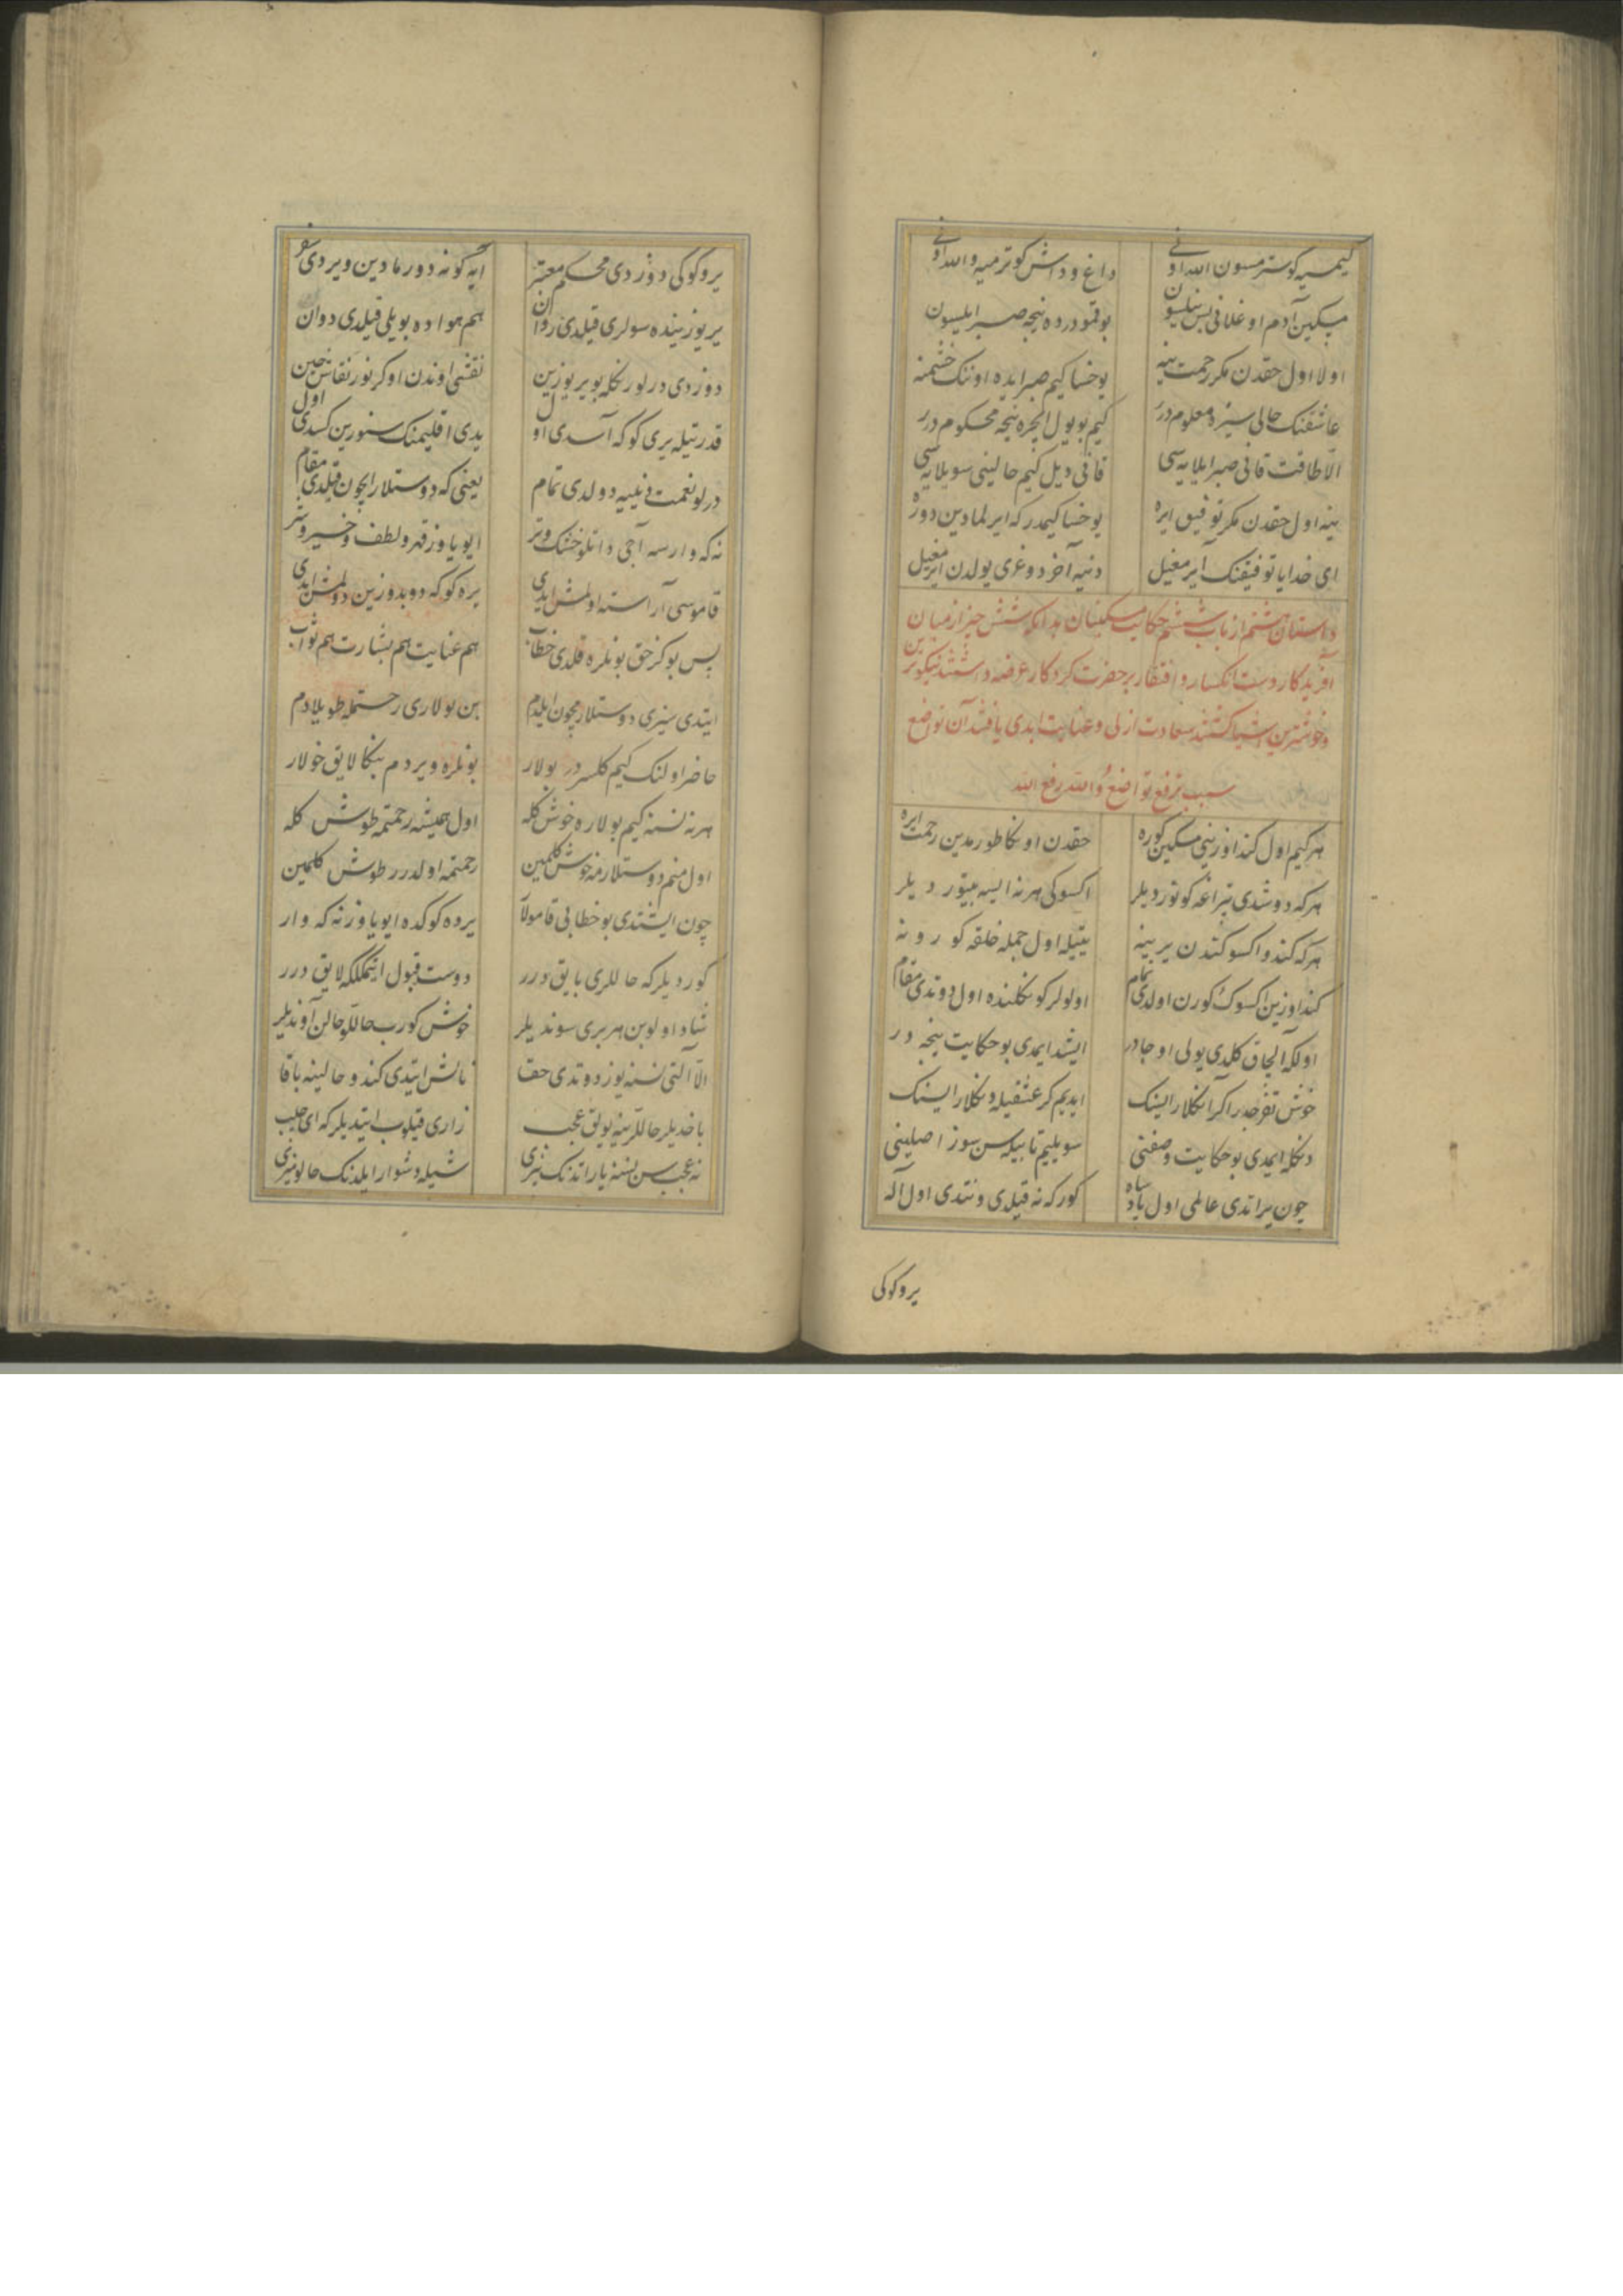 کیمسیه کوسترمسون الله اونی داغ و داش کوترمیه والله اونی
مسکین آدم اوغلانی بس نیلسون بو قمو درده نیجه صبر ایلسون
اولا اول حقدن مکر رحمت ینه یوخسا کیم صبر ایده اوننک خشمنه
عاشقنک حالی سیزه معلوم درر کیم بو یول ایچره نیجه محکوم درر
الا طاقت قانی صبر ایلایه سی قانی دیل کیم حالینی سویلایه سی
ینه اول حقدن مکر توفیق ایره یوخسا کیمدر که ایرلمادین دوره
ای خدایا توفیقنک آیرمغیل دنیه آخر دوغری یولدن ایرمغیل
داستان هشتم از باب ششم حکایت مسکینان بدانکه شش چیز از میان
آفریدگار دست انکسار و افتقار بر حضرت کردکار عرضه داشتند نیکوترین
و خوشترین اشیا کشتند سعادت ازلی و عنایت ابدی یافتند آن تواضع
سبب ترفع تواضع والله رفع الله
هر کیم اول کند اوزینی مسکین کوره حقدن اونکا طورمدین رحمت ایره
هر که دوشدی تیراغه کوتوردیلر اکسوکی هر نه ایسه بیتوردیلر
هر که کندو اکسوکندن یرینه یتیله اول جمله خلقه کورونه
کند اوزین اکسوک کورن اولدی تمام اولولر کونکلنده اول دوتدی مقام
اولکه الچاق کلدی یولی اوجادر ایشد ایمدی بو حکایت نیجه در
خوش تفرجدر اکر انکلار ایسنک ایدیم کر عشقیله دنکلار ایسنک
دنکله ایمدی بو حکایت وصفنی سویلیم تا بیله سن سوز اصلینی
چون یراتدی عالمی اول پادشاه کور که نه قیلدی و نتدی اول اله
یر و کوکی
یر و کوکی دوزدی محکم معتبر ایه کونه دورمادین ویردی سفر
یر یوزینده سولری قیلدی روان هم هواده یویلی قیلدی دوان
دوزدی درلو رنکله بو یر یوزین نقشی اوندن اوکرنور نقاش چین
قدرتیله یری کوکه آسدی اول یدی اقلیمنک سنورین کسدی اول
درلو نعمت دنییه دولدی تمام یعنی که دوستلار ایچون قیلدی مقام
نه که وارسه آجی و اتلو خشک و تر ایو یاوز قهر و لطف و خیر و شر
قاموسی آراسته اولمش ایدی یره کوکه دوبدوزین دولمش ایدی
پس بو کز حق بونلره قلدی خطاب هم عنایت هم بشارت هم ثواب
ایتدی سیزی دوستلارمچون ایلدم بن بولاری رحمتمله طویلادم
حاضر اولنک کیم کلسردر بولار بونلره ویردم بنکا لایق خولار
هر نه نسنه کیم بولاره خوش کله اول همیشه رحمتمه طوش کله
اول منم دوستلارمه خوش کلمین رحمتمه اولدرر طوش کلمین
چون ایشتدی بو خطابی قامولار یرده کوکده ایو یاوز نه که وار
کوردیلر که حاللری بایق درر دوست قبول ایتمکلکه لایق درر
شاد اولوبن هر بری سوندیلر خوش کورب حاللو حالن آوندیلر
الا آلتی نسنه یوز دوتدی حقا نالش ایتدی کندو حالینه باقا
باخدیلر حاللرینه یولق عجب زاری قیلوب ایتدیلر که ای حبیب
نه عجب سن نسنه یاراتدنک بیزی شیله دشوار ایلدنک حالومیزی